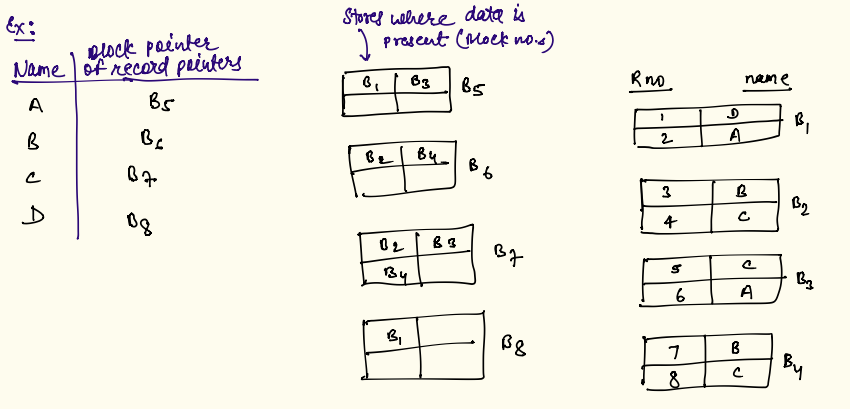 Ex:
Name | Block pointer of record pointers
A B5
B B6
C B7
D B8
Stores where data is
present (Block no.s)
B1 B3 B5
B2 B4 B6
B2 B3 B7
B4
B1 B8
Rno name
1 D B1
2 A
3 B B2
4 C
5 C B3
6 A
7 B B4
8 C